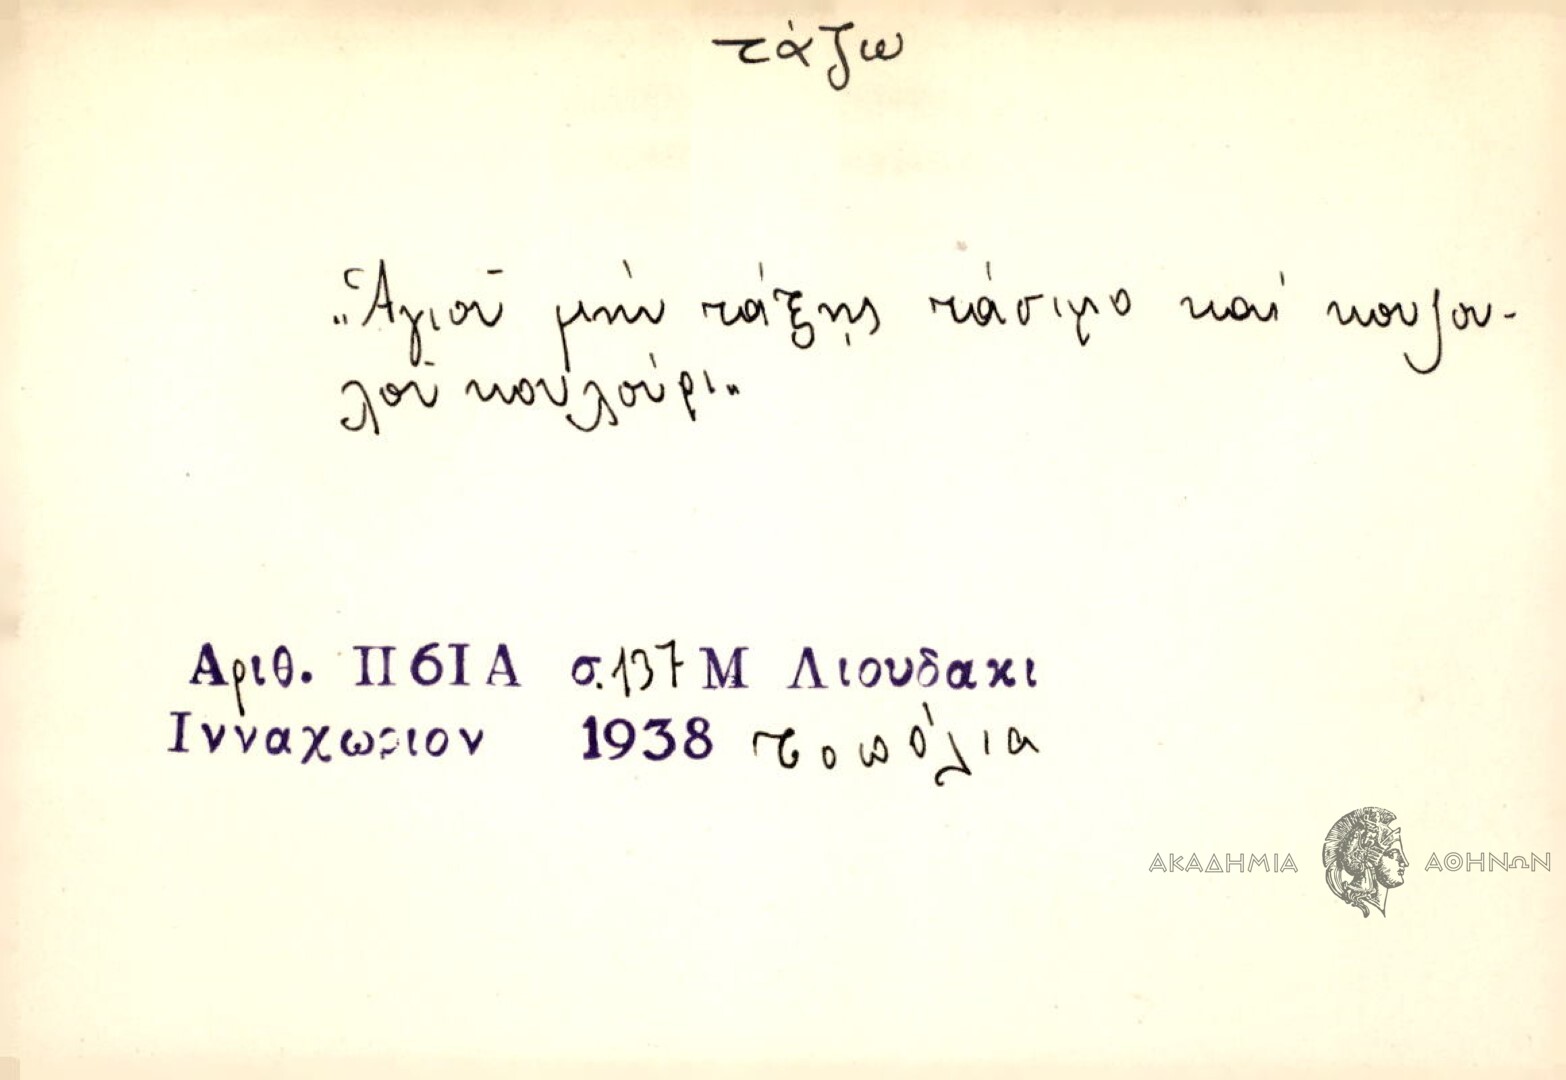 τάζω
„Ἁγιοῦ μὴν τάξῃς τάσιμο καὶ κουζου-
λοῦ κουλούρι"
Αριθ. ΠΒΙΑ σ.137 Μ Λιουδακι
Ινναχωριον 1938 τοπόλια
ΑΚΑΔΗΜΙΑ ΑΘΗΝΩΝ